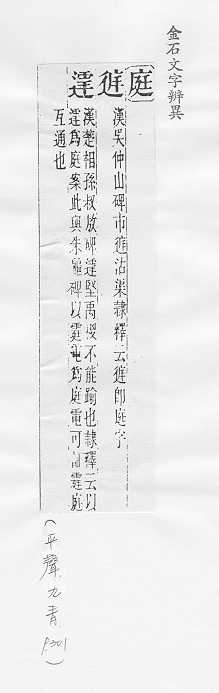 金石文字辨異
庭
漢吳仲山碑市沽渠隸釋云即庭字
漢楚相孫叔敖碑堅禹稷不能踰也隸釋云以
為庭案此與朱龜碑以霆電為庭電可霆庭
互通也
(平聲.九青 p.301)